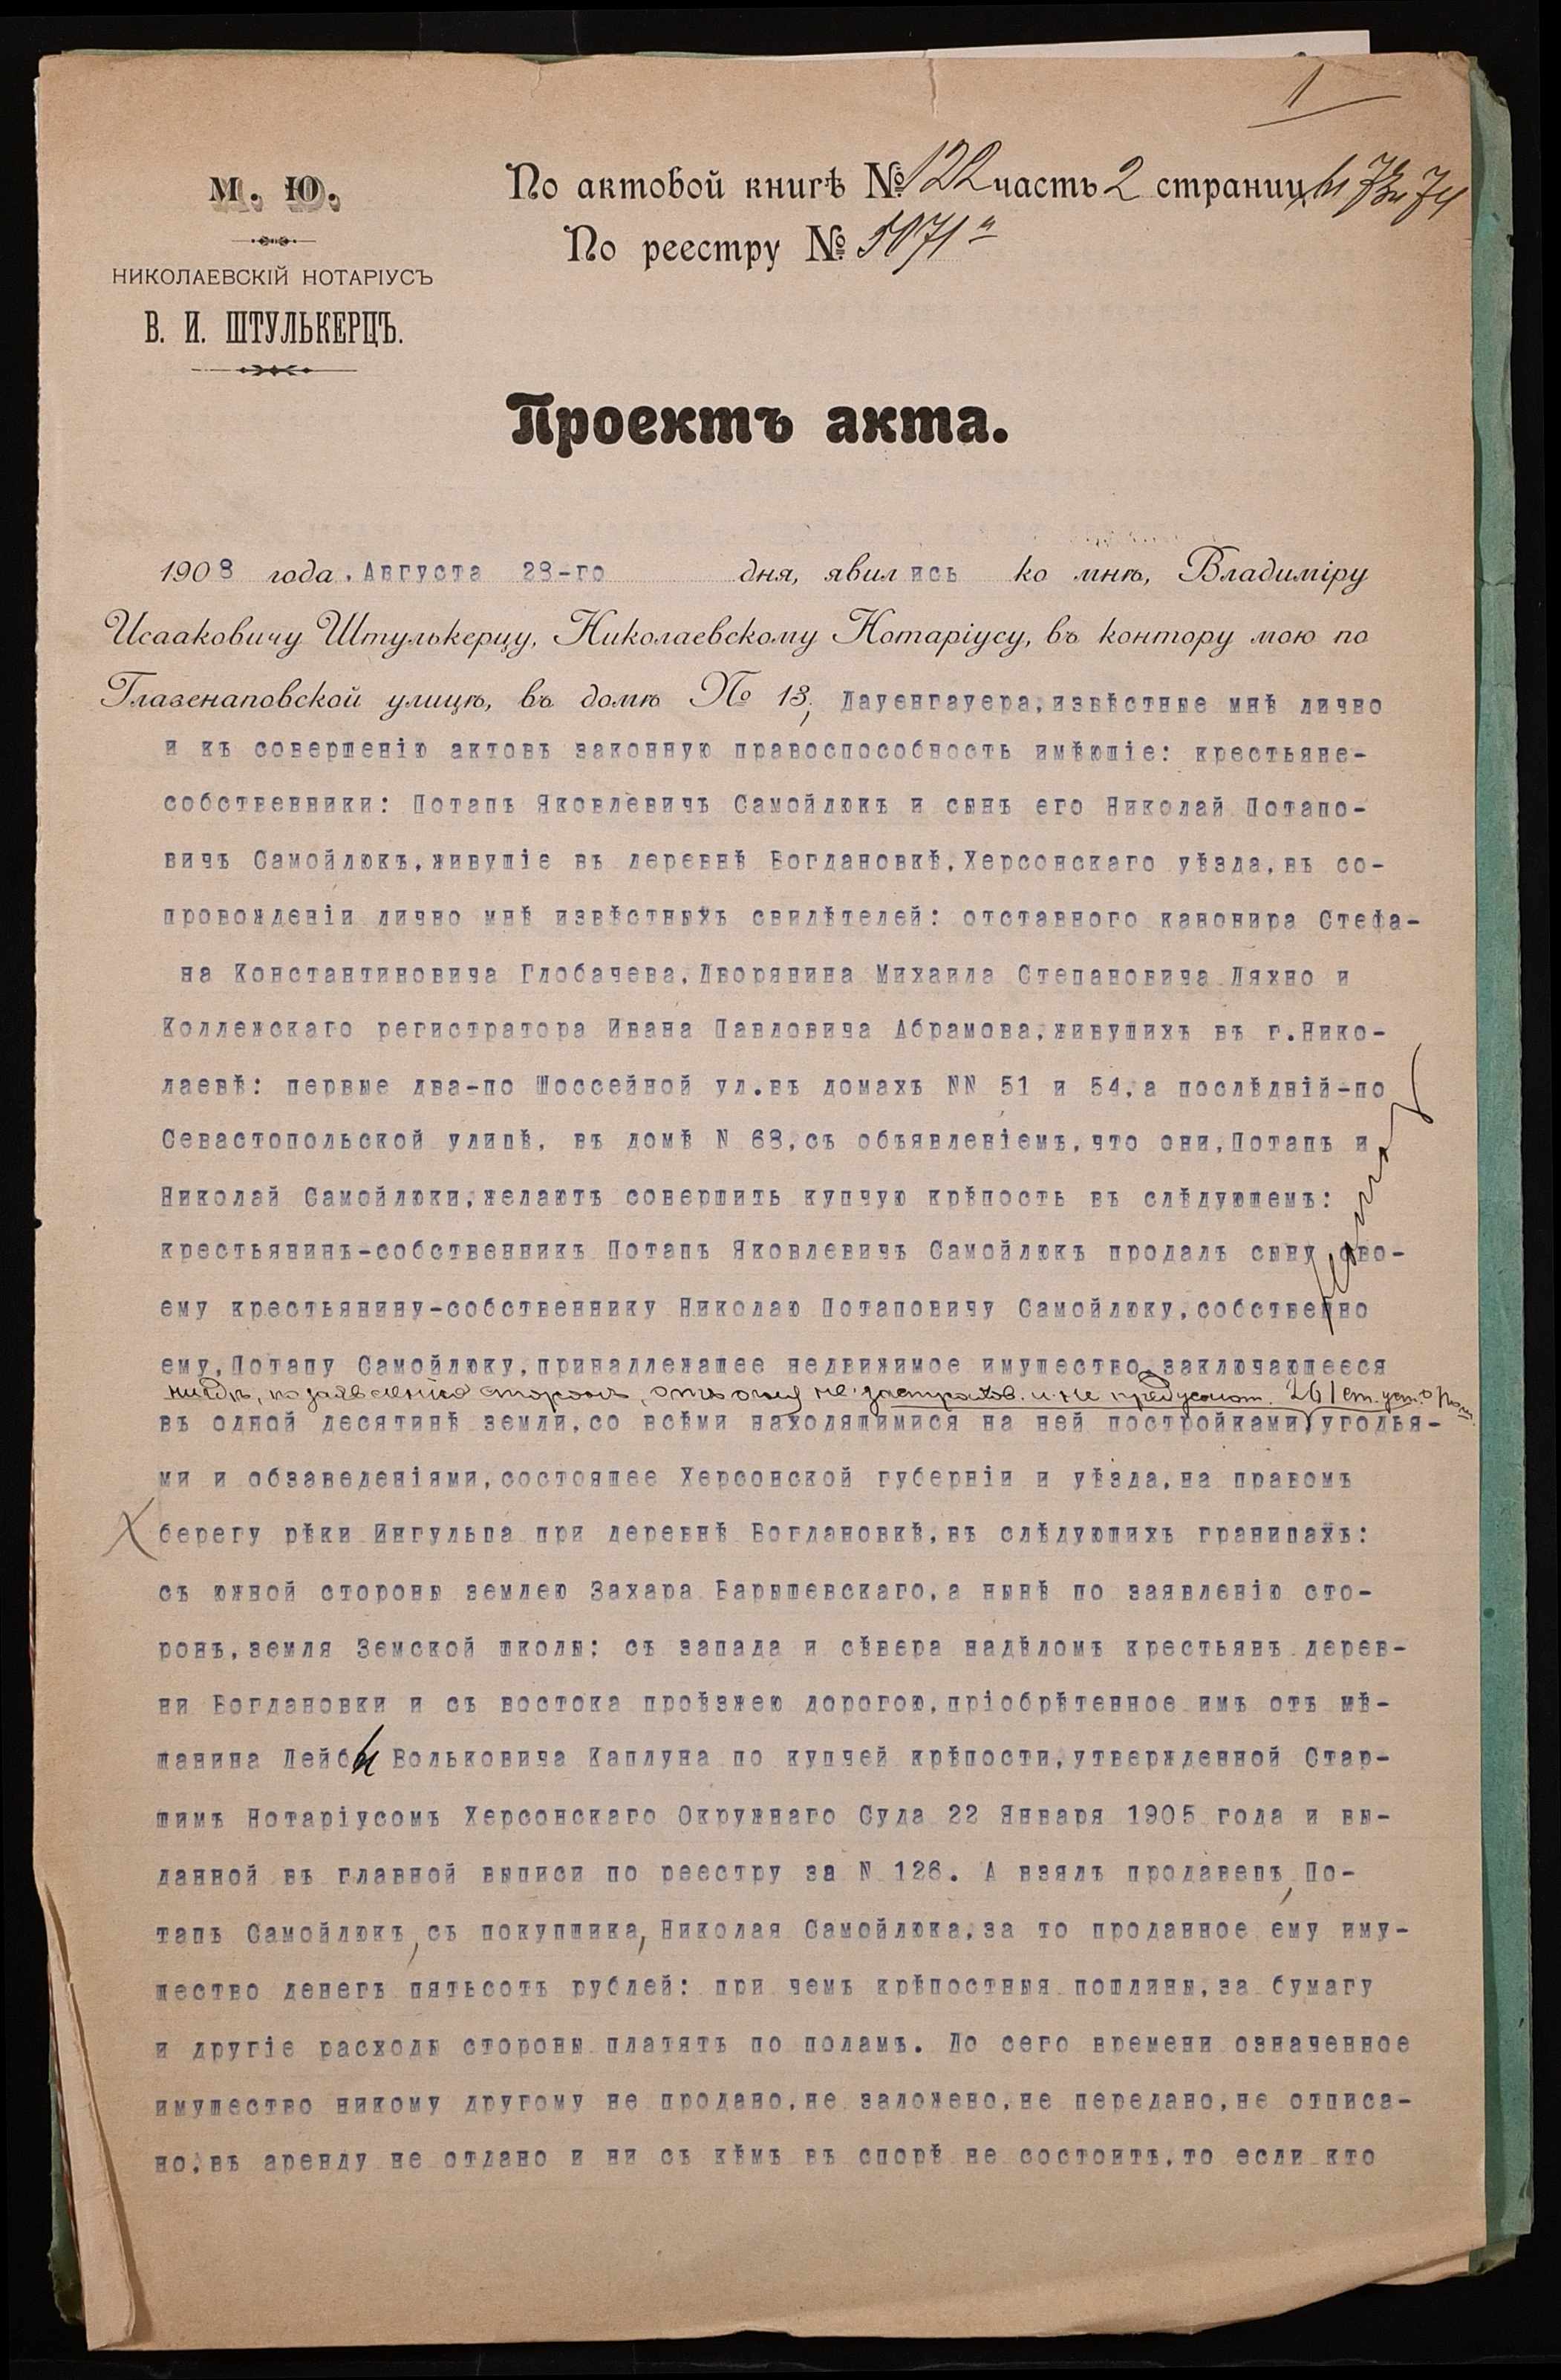 1
М. Ю.
НИКОЛАЕВСКІЙ НОТАРІУСЪ
В. И. ШТУЛЬКЕРЦЪ.
По актовой книгѣ № 122 часть 2 страниц. 73 и 74
По реестру № 5071
Проектъ акта.
1908 года. Августа 28-го дня, явились ко мнѣ, Владиміру
Исааковичу Штулькерцу, Николаевскому Нотаріусу, въ контору мою по
Глазенаповской улицѣ, въ домѣ № 13, Дауенгауера,извѣстные мнѣ лично
и къ совершенію актовъ законную правоспособность имѣющіе: крестьяне-
собственники: Потапъ Яковлевичъ Самойлюкъ и сынъ его Николай Потапо-
вичъ Самойлюкъ,живущіе въ деревнѣ Богдановкѣ,Херсонскаго уѣзда,въ со-
провожденіи лично мнѣ извѣстныхъ свидѣтелей: отставного канонира Стефа-
на Константиновича Глобачева,Дворянина Михаила Степановича Ляхно и
Коллежскаго регистратора Ивана Павловича Абрамова,живущихъ въ г.Нико-
лаевѣ: первые два-по Шоссейной ул.въ домахъ NN 51 и 54,а послѣдній-по
Севастопольской улицѣ, въ домѣ N 68,съ объявленіемъ,что они,Потапъ и
Николай Самойлюки,желаютъ совершить купчую крѣпость въ слѣдующемъ:
крестьянинъ-собственникъ Потапъ Яковлевичъ Самойлюкъ продалъ сыну сво-
ему крестьянину-собственнику Николаю Потаповичу Самойлюку,собственно
ему,Потапу Самойлюку,принадлежащее недвижимое имущество,заключающееся
нигдѣ, по заявленію сторонъ, отъ огня не застрахов. и не предусмот. 261 ст. уст. о
въ одной десятинѣ земли,со всѣми находящимися на ней постройками,угодья-
ми и обзаведеніями,состоящее Херсонской губерніи и уѣзда,на правомъ
берегу рѣки Ингульца при деревнѣ Богдановкѣ,въ слѣдующихъ границахъ:
съ южной стороны землею Захара Барышевскаго,а нынѣ по заявленію сто-
ронъ,земля Земской школы; съ запада и сѣвера надѣломъ крестьянъ дерев-
ни Богдановки и съ востока проѣзжею дорогою,пріобрѣтенное имъ отъ мѣ-
щанина Лейбы Вольковича Каплуна по купчей крѣпости,утвержденной Стар-
шимъ Нотаріусомъ Херсонскаго Окружнаго Суда 22 Января 1905 года и вы-
данной въ главной выписи по реестру за N 126. А взялъ продавецъ, По-
тапъ Самойлюкъ, съ покупщика, Николая Самойлюка,за то проданное ему иму-
щество денегъ пятьсотъ рублей; при чемъ крѣпостныя пошлины,за бумагу
и другіе расходы стороны платятъ по поламъ. До сего времени означенное
имущество никому другому не продано,не заложено,не передано,не отписа-
но,въ аренду не отдано и ни съ кѣмъ въ спорѣ не состоитъ,то если кто